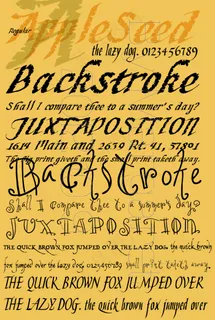 Regular AppleSeed
the lazy dog. 0123456789
Backstroke
Shall I compare thee to a summer's day?
JUXTAPOSITION
1614 Main and 2639 Rt. 41, 57801
The big print giveth and the small print taketh away.
Backstroke
Shall I Compare thee to a summer's day?
JUXTAPOSITION
THE QUICK BROWN FOX JUMPED OVER THE LAZY DOG. the quick brown
fox jumped over the lazy dog. 0123456789 small print taketh away.
THE QUICK BROWN FOX JUMPED OVER
THE LAZY DOG. the quick brown fox jumped over